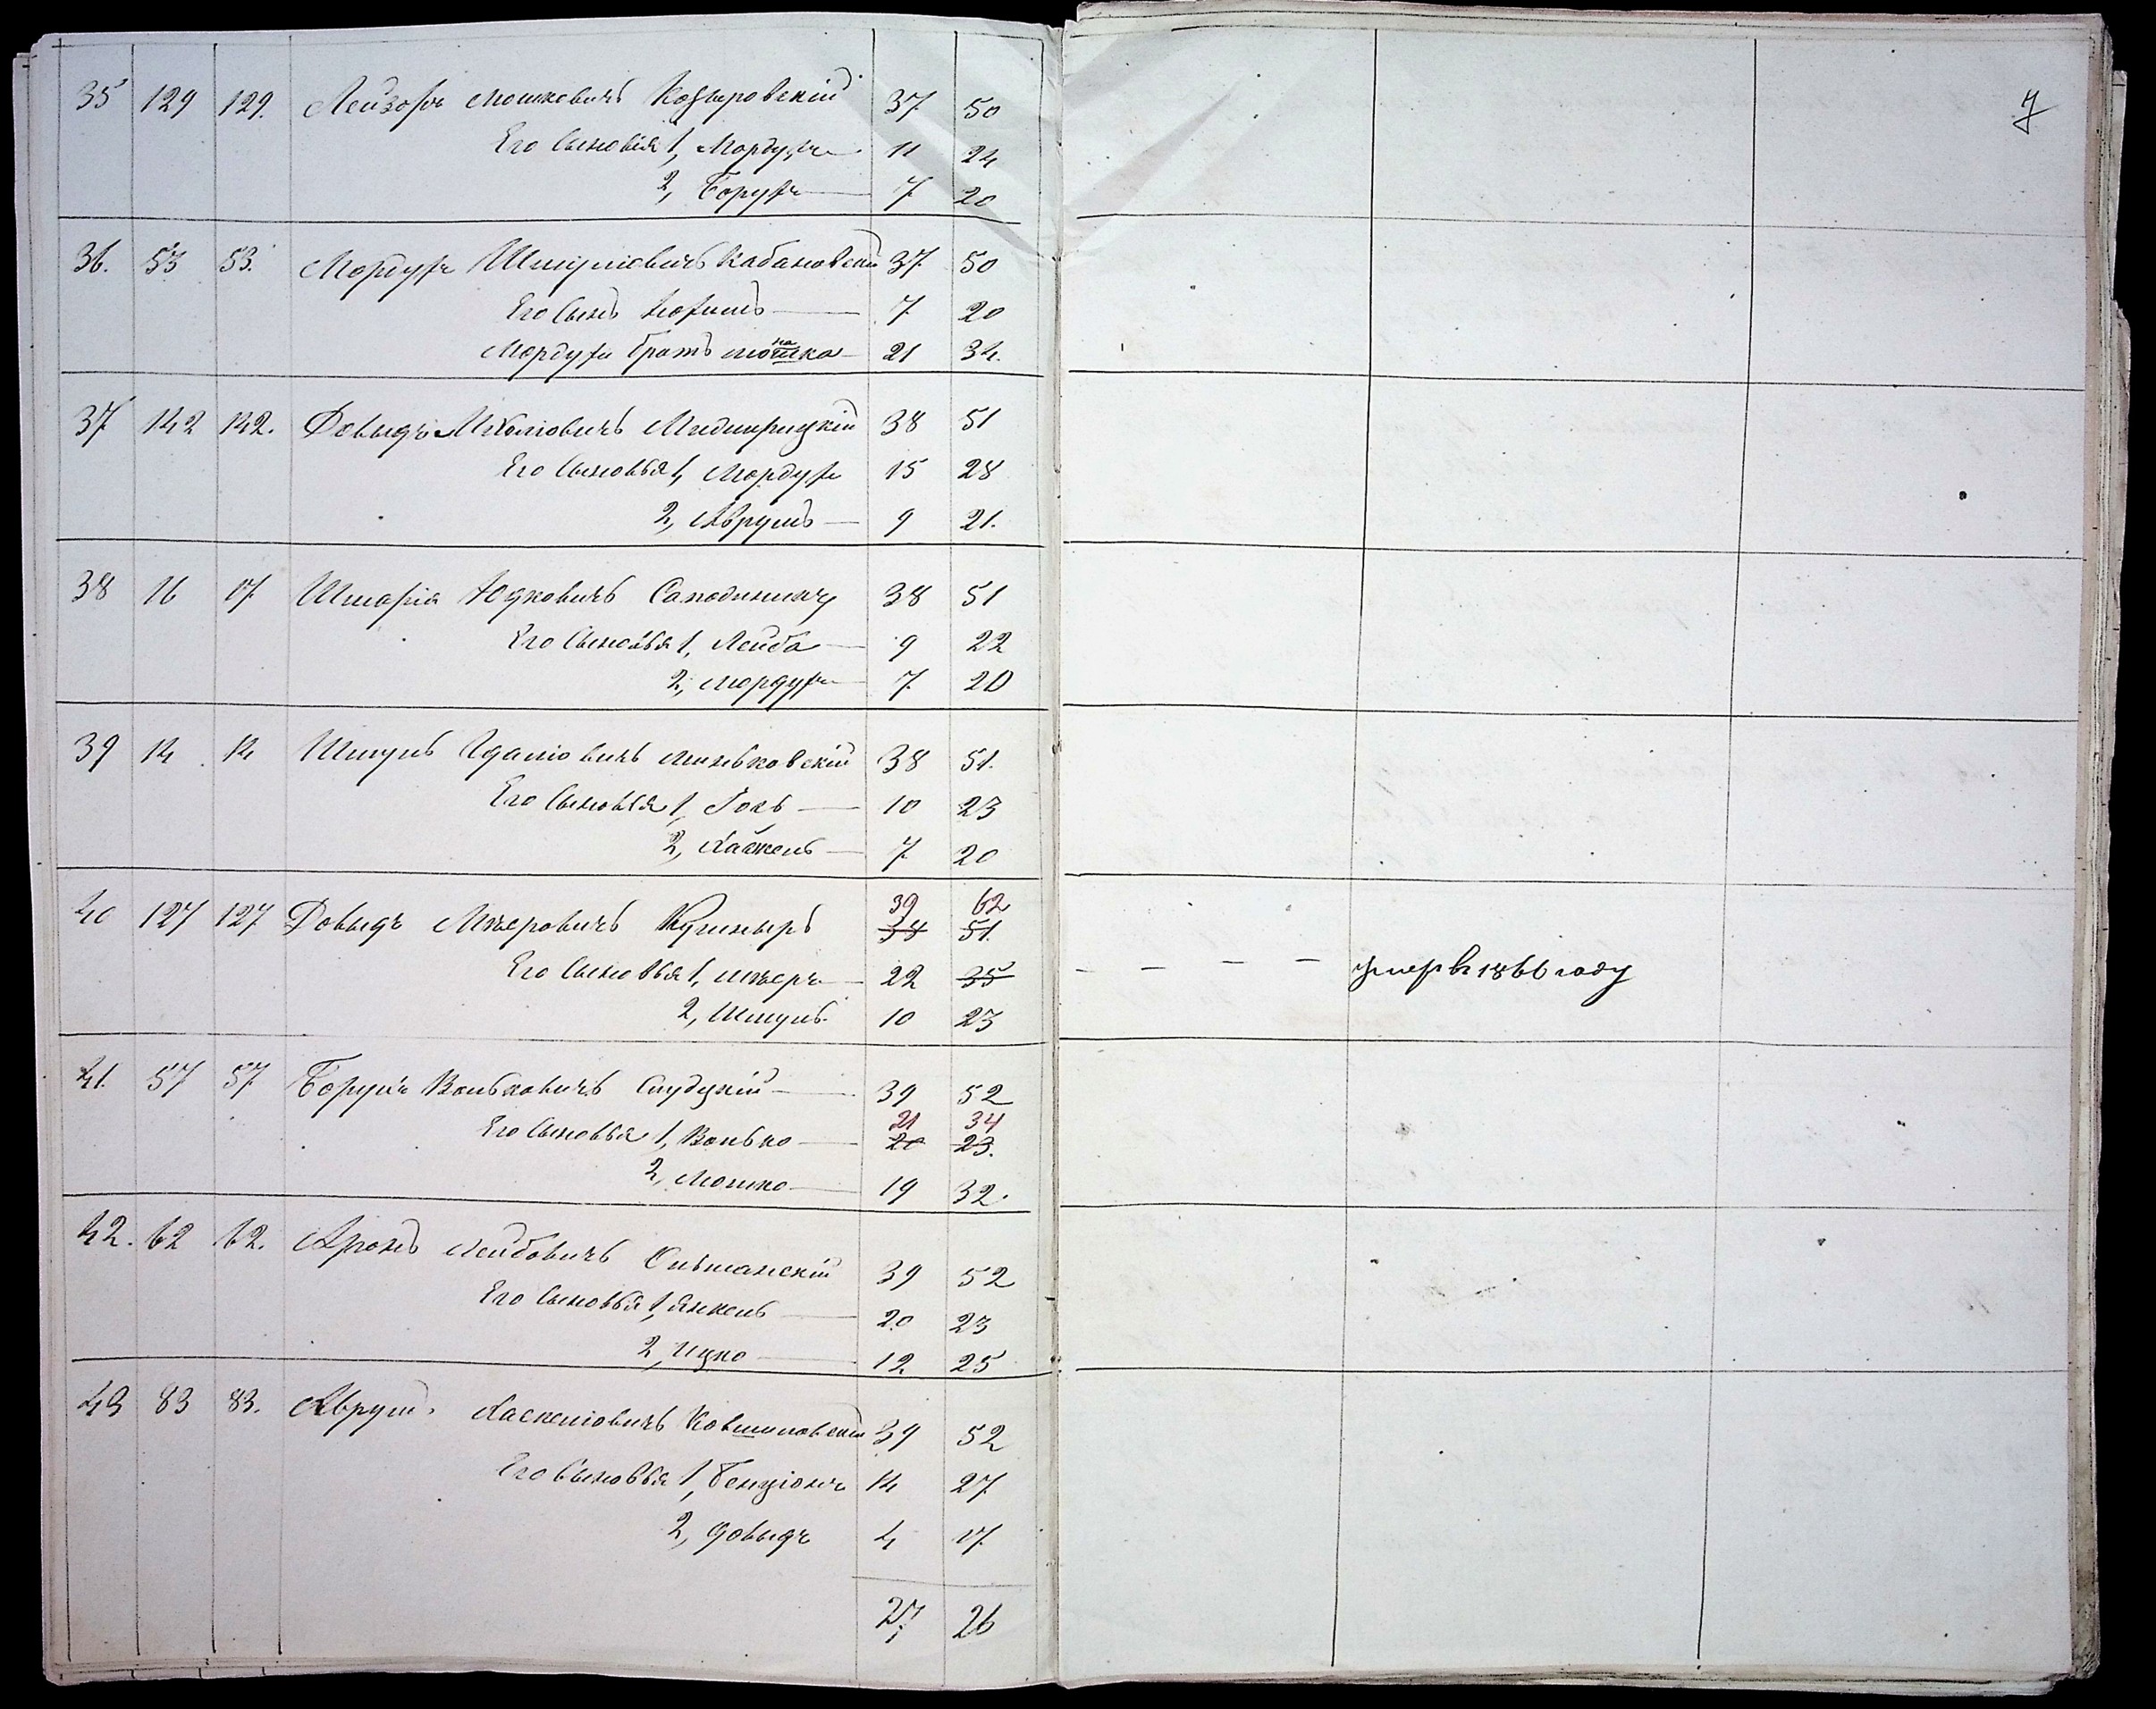 7
35 129 129. Лейзоръ Мошковичъ Козыровскій 37 50
Его сыновья 1, Мордухъ 11 24
2, Борухъ 7 20
36. 53 53. Мордухъ Шмуліовичъ Кабановскій 37 50
Его сынъ Нохимъ 7 20
Мордуха братъ Мошка 21 34.
37 142 142. Довыдъ Мовшовичъ 38 51
Его сыновья 1, Мордухъ 15 28
2, Аврумъ 9 21.
38 16 17. Шмарія Юдковичъ 38 51
Его сыновья 1, Лейба 9 22
2, Мордухъ 7 20
39 14 14 Шмуль Идаліовичъ Линьковскій 38 51.
Его сыновья 1, 10 23
2, Хаскель 7 20
39 62
40 127 127 Довыдъ Мееровичъ Кушныръ 38 51.
Его сыновья 1, Мееръ 22 35 умеръ в 1866 году
2, Шмуль 10 23
41. 57 57 Борухъ Вольковичъ Слуцкій 39 52
21 34
Его сыновья 1, Волько 20 23.
2, Мошко 19 32.
42. 62 62. Аронъ Лейбовичъ 39 52
Его сыновья 1, Янкель 20 23
2, Ицко 12 25
43 83 83. Аврумъ Хаскеліовичъ 39 52
Его сыновья 1, Бенціонъ 14 27
2, Довыдъ 4 17.
27 26